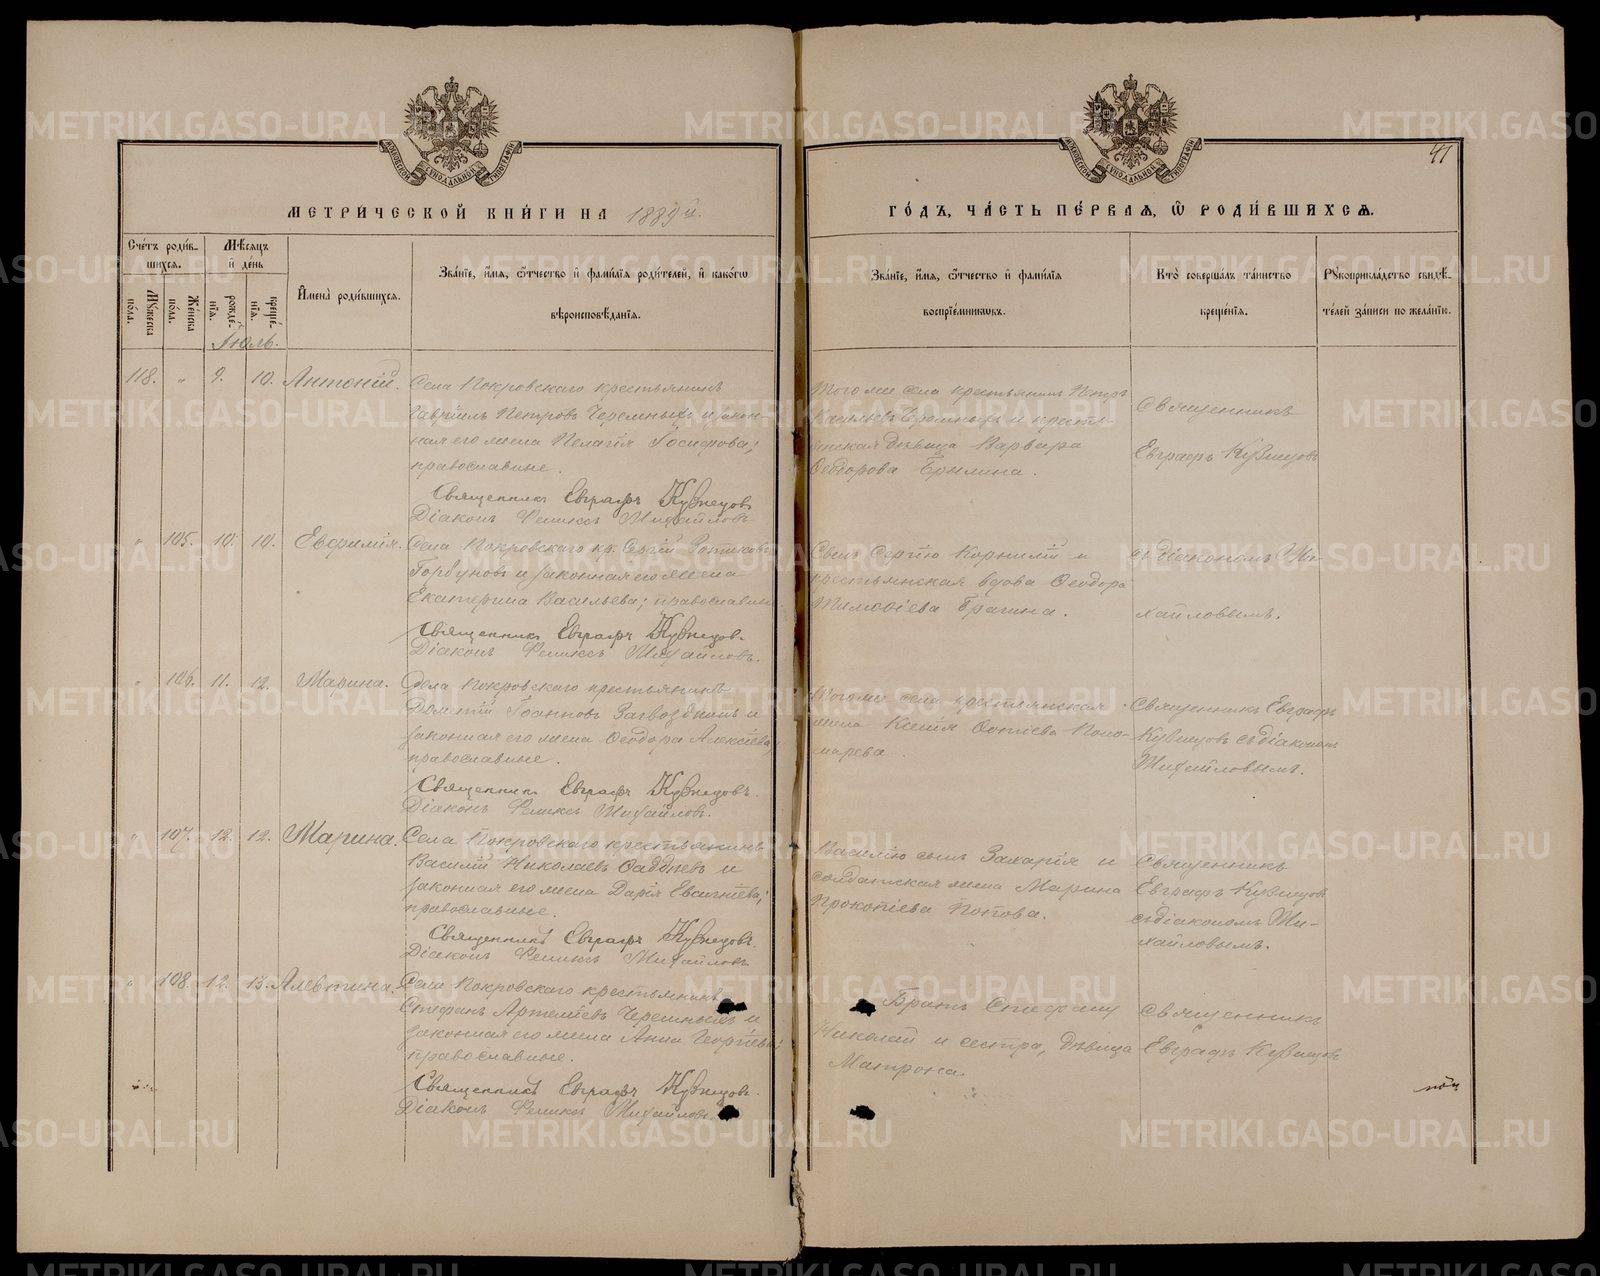 41
МЕТРИЧЕСКОЙ КНИГИ НА 1889 й.
Счетъ родив-
шихся.
Мѣсяцъ
и день
Имена родившихся.
Званіе, имя, отчество и фамилія родителей, и какого
вѣроисповѣданія.
Мужеска пола.
Женска пола.
рожде-
нія.
креще-
нія.
Іюль.
118. " 9. 10. Антоній.
Села Покровскаго крестьянинъ
Гавріилъ Петровъ Черемныхъ и закон-
ная его жена Пелагія Іосифова;
православные.
Священникъ Евграфъ Кузнецовъ
Діаконъ Феликсъ Михайловъ
" 105. 10. 10. Евфимія.
Села Покровскаго кр. Сергій Зотиковъ
Горбуновъ и законная его жена
Екатерина Васильева; православные
Священникъ Евграфъ Кузнецов.
Діаконъ Феликсъ Михайловъ.
" 106. 11. 12. Марина.
Села Покровскаго крестьянинъ
Дометій Іоанновъ Загвоздкинъ и
законная его жена Феодора Алексіева,
православные.
Священникъ Евграфъ Кузнецовъ.
Діаконъ Феликсъ Михайловъ.
" 107. 12. 12. Марина.
Села Покровскаго крестьянинъ
Василій Николаевъ Фаддѣевъ и
законная его жена Дарія Евсигніева;
православные.
Священникъ Евграфъ Кузнецовъ.
Діаконъ Феликсъ Михайловъ
" 108. 12. 13. Алевтина.
Села Покровскаго крестьянинъ
Стефанъ Артеміевъ Черемныхъ и
законная его жена Анна Георгіева;
православные.
Священникъ Евграфъ Кузнецовъ.
Діаконъ Феликсъ Михайловъ.
ГОДЪ, ЧАСТЬ ПЕРВАЯ, Ѡ РОДИВШИХСЯ.
Званіе, имя, отчество и фамилія
воспріемниковъ.
Кто совершалъ таинство
крещенія.
Рукоприкладство свидѣ-
телей записи по желанію.
Того же села крестьянинъ Петръ
Васильевъ Черемныхъ и кресть-
янская дѣвица Варвара
Феодорова Брылина.
Священникъ
Евграфъ Кузнецовъ
Сынъ Сергію Корнилій и
крестьянская вдова Феодора
Тимофіева Брагина.
съ діакономъ Ми-
хайловымъ.
Того же села крестьянская
жена Ксенія Фотіева Поно-
марева
Священникъ Евграфъ
Кузнецовъ съ діакономъ
Михайловымъ.
Василію сынъ Захарія и
солдатская жена Марина
Прокопіева Попова.
Священникъ
Евграфъ Кузнецовъ
съ діакономъ Ми-
хайловымъ.
Братъ Стефану
Николай и сестра, дѣвица
Матрона.
Священникъ
Евграфъ Кузнецовъ
METRIKI.GASO-URAL.RU